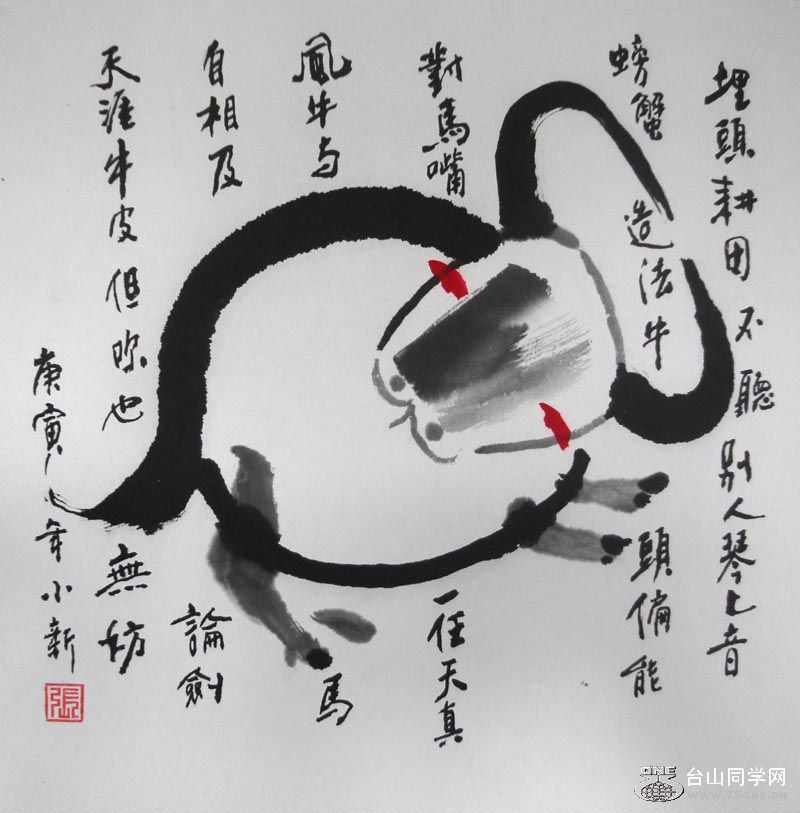 埋頭耕田不聽別人琴上音
螃蟹造法牛頭偏能
對馬嘴一任天真
風牛与馬
自相及論劍
天涯牛皮但吹也無妨
庚寅年小新
張
台山同学网
ONE
www.75one.cn